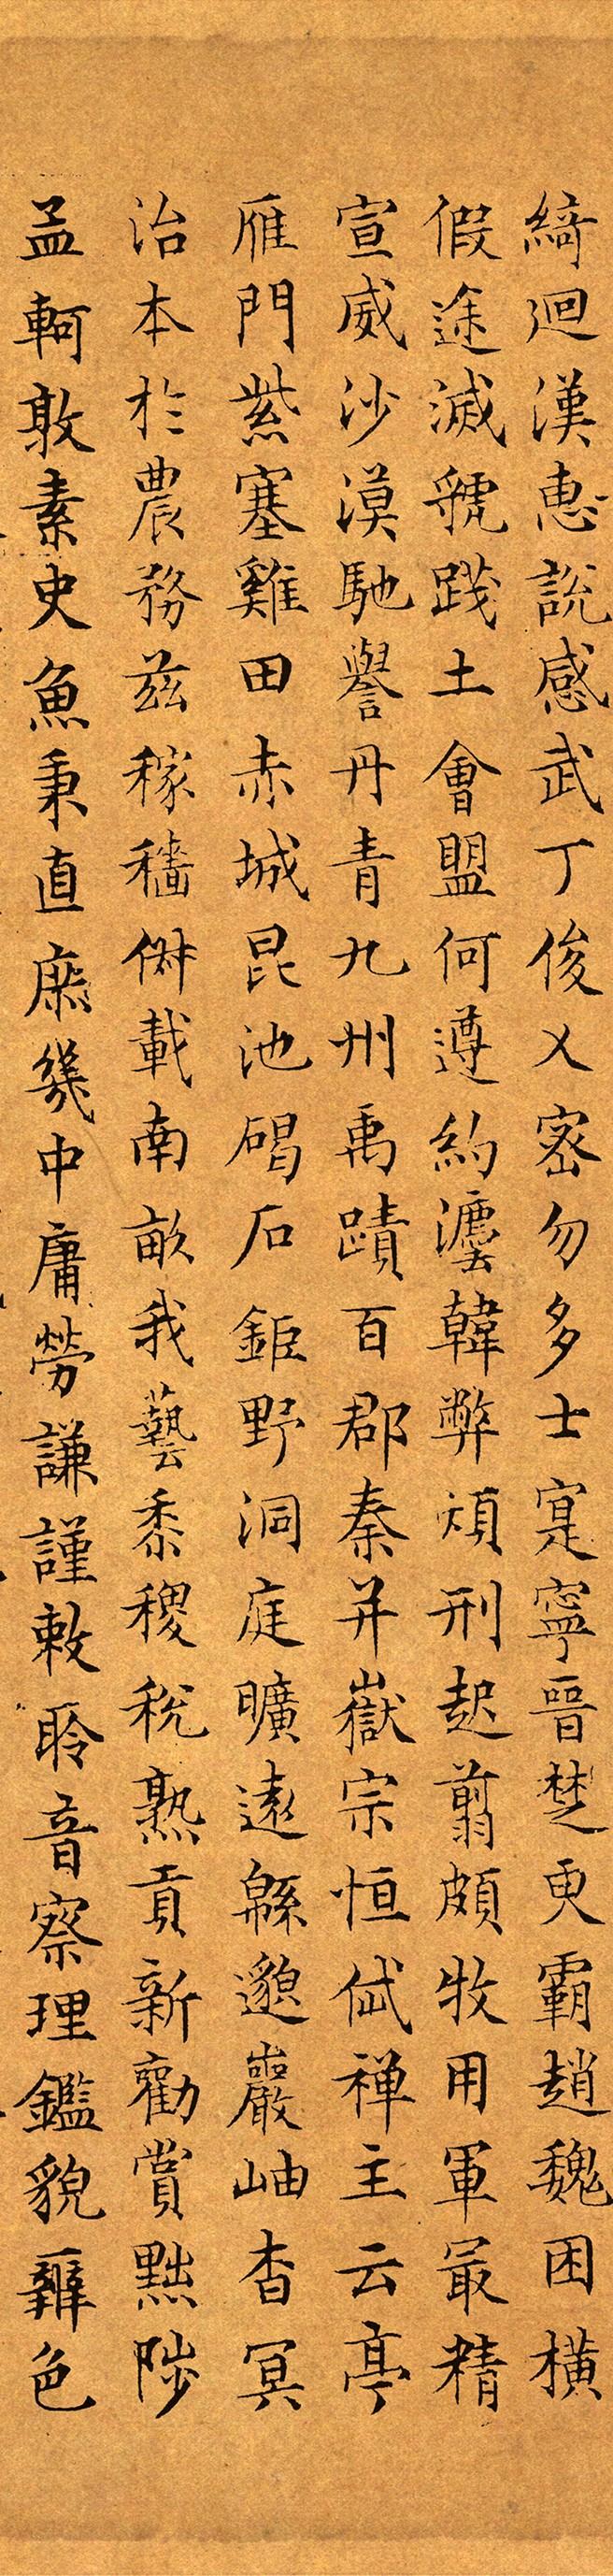 綺迴漢惠說感武丁俊乂密勿多士寔寧晉楚更霸趙魏困橫
假途滅虢踐土會盟何遵約瀍韓弊煩刑起翦頗牧用軍最精
宣威沙漠馳譽丹青九州禹蹟百郡秦并嶽宗恒岱禅主云亭
雁門紫塞雞田赤城昆池碣石鉅野洞庭曠遠緜邈巖岫杳冥
治本於農務茲稼穡俶載南畝我藝黍稷稅熟貢新勸賞黜陟
孟軻敦素史魚秉直庶幾中庸勞謙謹敕聆音察理鑑貌辨色